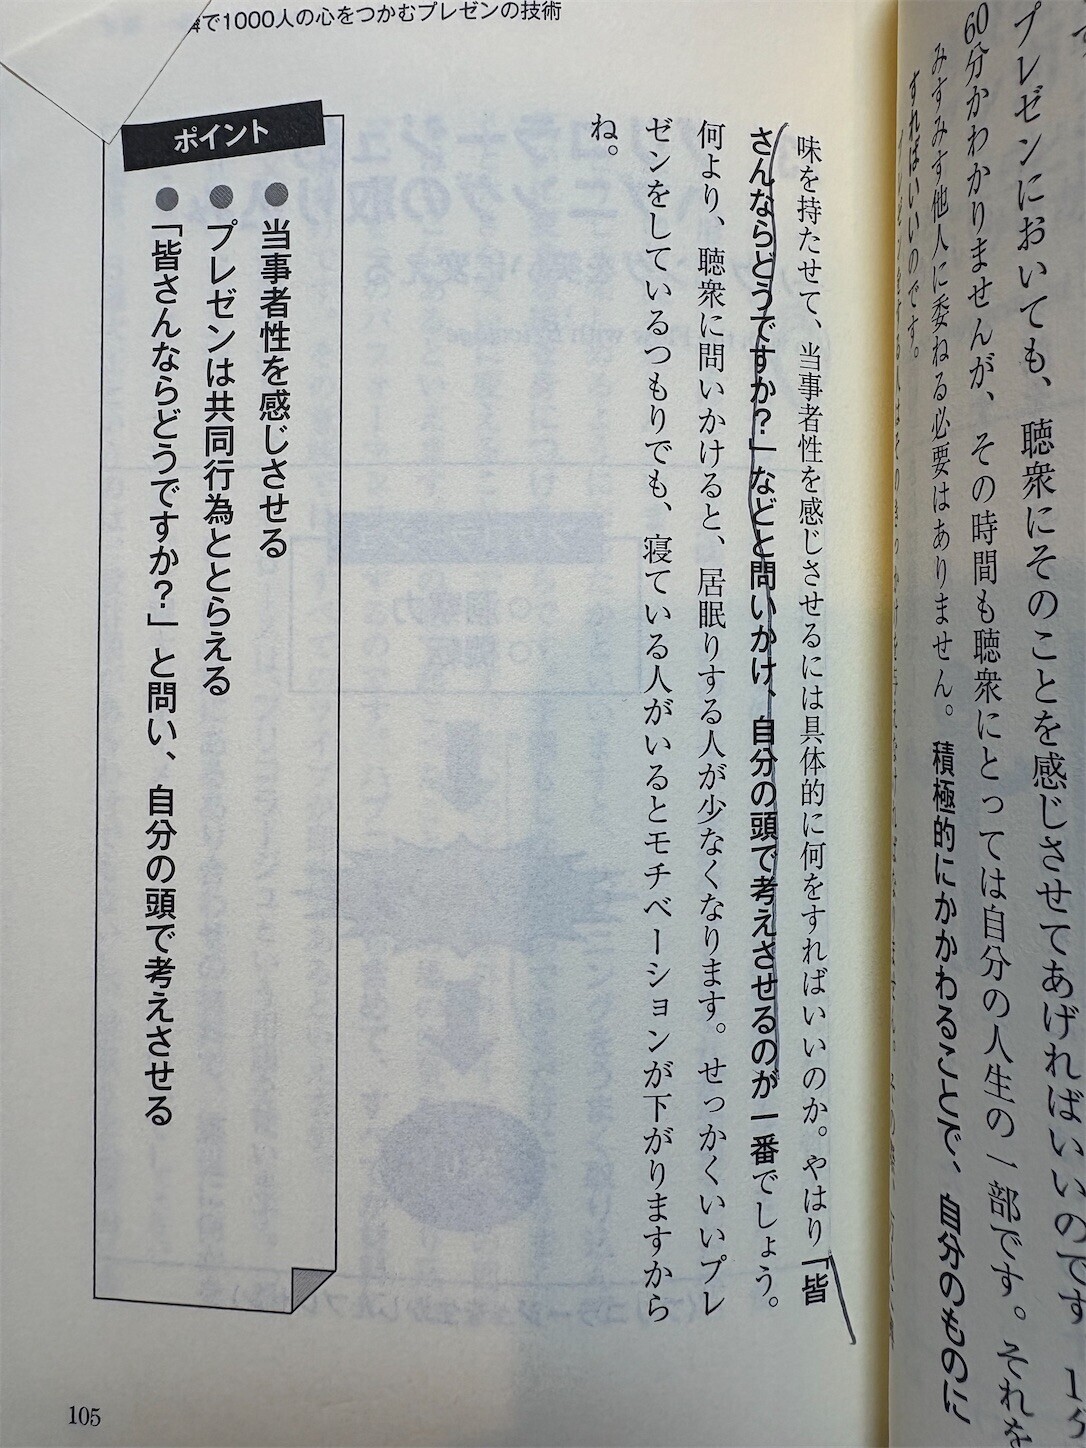 で1000人の心をつかむプレゼンの技術
プレゼンにおいても、聴衆にそのことを感じさせてあげればいいのです
60分かわかりませんが、その時間も聴衆にとっては自分の人生の一部です。それを
みすみす他人に委ねる必要はありません。積極的にかかわることで、自分のものに
すればいいのです。
味を持たせて、当事者性を感じさせるには具体的に何をすればいいのか。やはり「皆
さんならどうですか?」などと問いかけ、自分の頭で考えさせるのが一番でしょう。
何より、聴衆に問いかけると、居眠りする人が少なくなります。せっかくいいプレ
ゼンをしているつもりでも、寝ている人がいるとモチベーションが下がりますから
ね。
ポイント
●当事者性を感じさせる
●プレゼンは共同行為ととらえる
●「皆さんならどうですか?」と問い、自分の頭で考えさせる
105